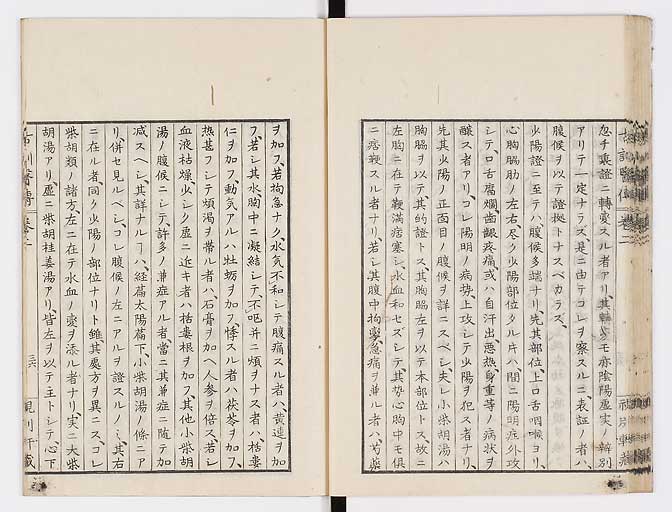 忽チ裏證ニ轉變スル者アリ、其轉變モ亦陰陽虚実ノ辨別
アリテ一定ナラズ、是ニ由テコレヲ察スルニ、表証ノ者ハ、
腹候ヲ以テ證拠トナスベカラズ、
少陽證ニ至テハ腹候多端ナリ、先其部位上口舌咽喉ヨリ、
心胸脇肋ノ左右尽ク少陽部位タル片ハ、間ニ陽明症外攻
シテ、口舌腐爛、齒齦疼痛、或ハ自汗出悪熱身重等ノ病状ヲ
醸ス者アリ、コレ陽明ノ病勢上攻シテ少陽ヲ犯ス者ナリ、
先其少陽ノ正面目ノ腹候ヲ詳ニスベシ、夫レ小柴胡湯ハ
胸脇ヲ以テ其的證トス、其胸脇左ヲ以テ本部位トス、故ニ
左胸ニ在テ鞕滿痞塞シ、水血和セズシテ、其勢心胸中モ俱
ニ痞鞕スル者ナリ、若シ其腹中拘攣急痛ヲ兼ル者ハ、芍藥
ヲ加フ、若拘急ナク、水気不和シテ腹痛スル者ハ、黄連ヲ加
フ、若シ其水、胸中ニ凝結シテ、不呕并ニ煩ヲナス者ハ、栝蔞
仁ヲ加フ、動気アルハ牡蛎ヲ加フ、悸スル者ハ茯苓ヲ加フ、
熱甚フシテ煩渇ヲ帯ル者ハ、石膏ヲ加ヘ人参ヲ倍ス、若シ
血液枯燥少シク虚ニ近キ者ハ栝蔞根ヲ加フ、其他小柴胡
湯ノ腹候ニシテ、許多ノ兼症アル者、當ニ其兼症ニ随テ加
减スベシ、其詳ナルヿハ、経篇太陽篇下、小柴胡湯ノ條ニア
リ、併セ見ルベシ、コレ腹候ノ左ニアルヲ證スルノミ、其右
ニ在ル者、同ク少陽ノ部位ナリト雖、其處方ヲ異ニス、コレ
柴胡類ノ諸方、左ニ在テ水血ノ変ヲ添ル者ナリ、実ニ大柴
胡湯アリ、虚ニ柴胡桂姜湯アリ、皆左ヲ以テ主トシテ、心下